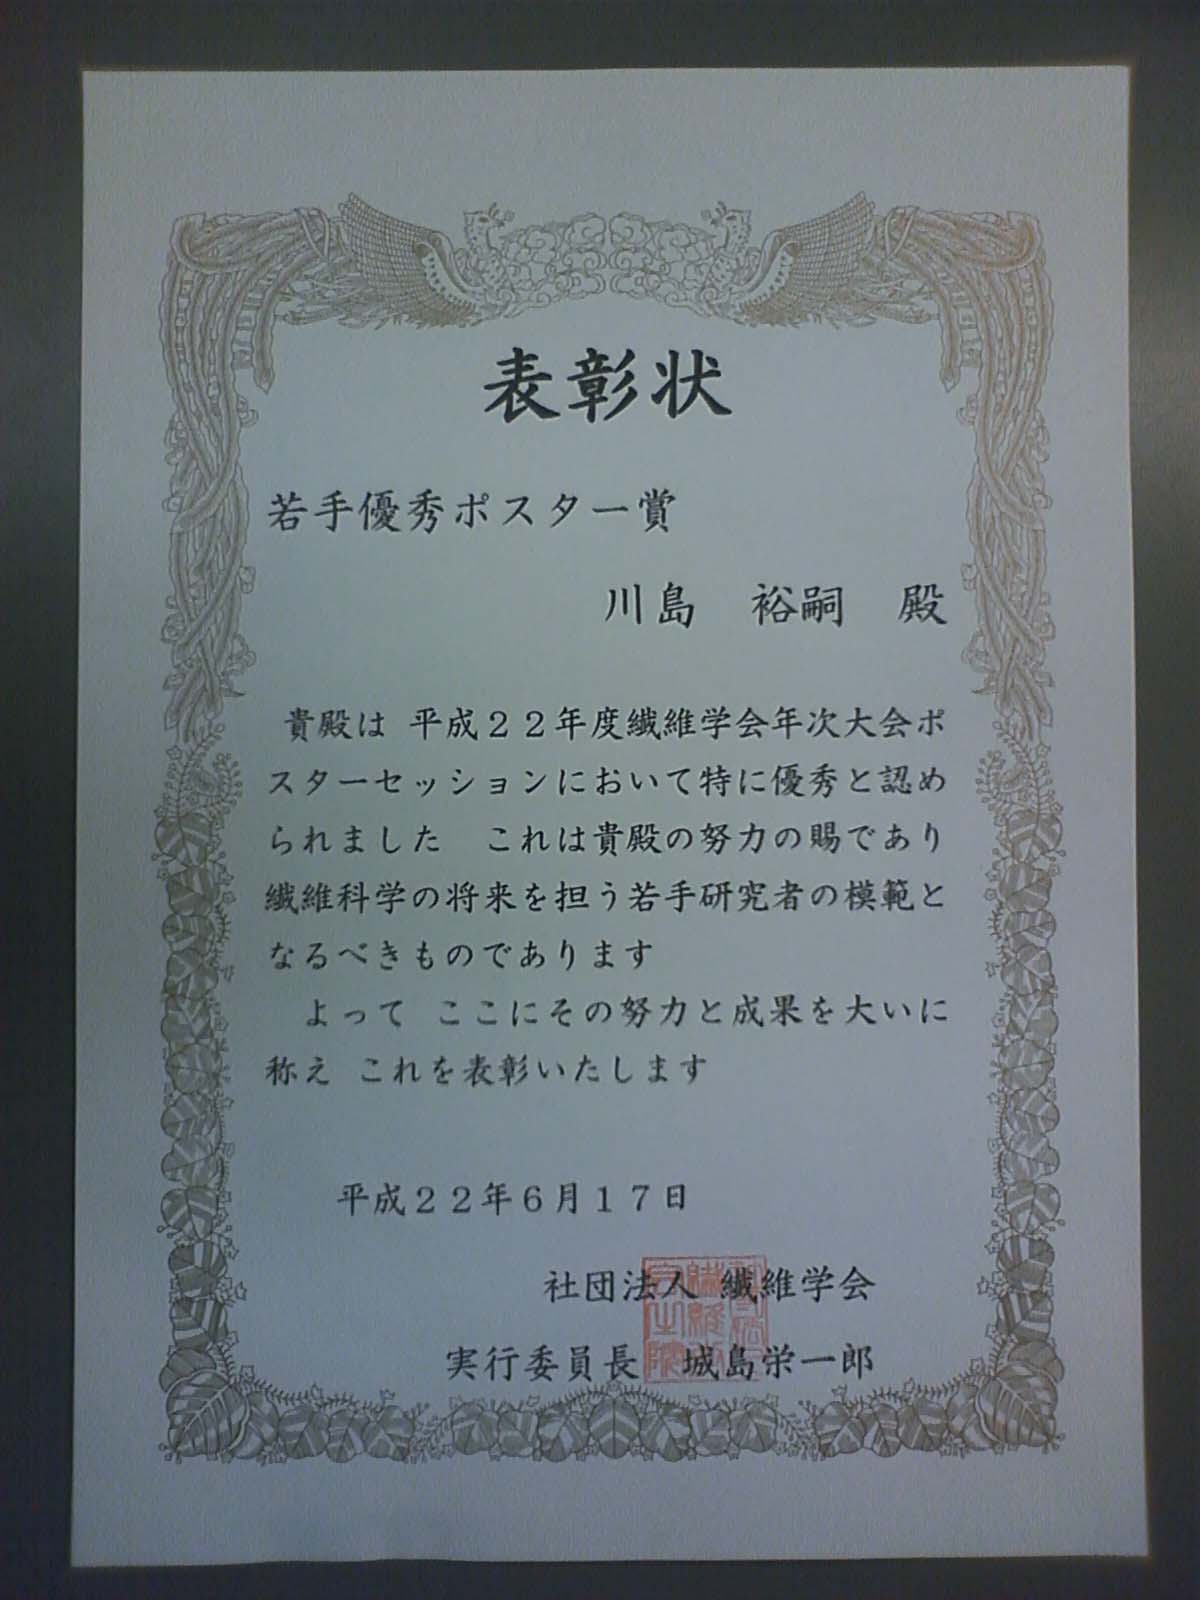 表彰状
若手優秀ポスター賞
川島　裕嗣　殿
貴殿は 平成２２年度繊維学会年次大会ポ
スターセッションにおいて特に優秀と認め
られました　これは貴殿の努力の賜であり
繊維科学の将来を担う若手研究者の模範と
なるべきものであります
よって ここにその努力と成果を大いに
称え これを表彰いたします
平成２２年６月１７日
社団法人 繊維学会
実行委員長　城島栄一郎